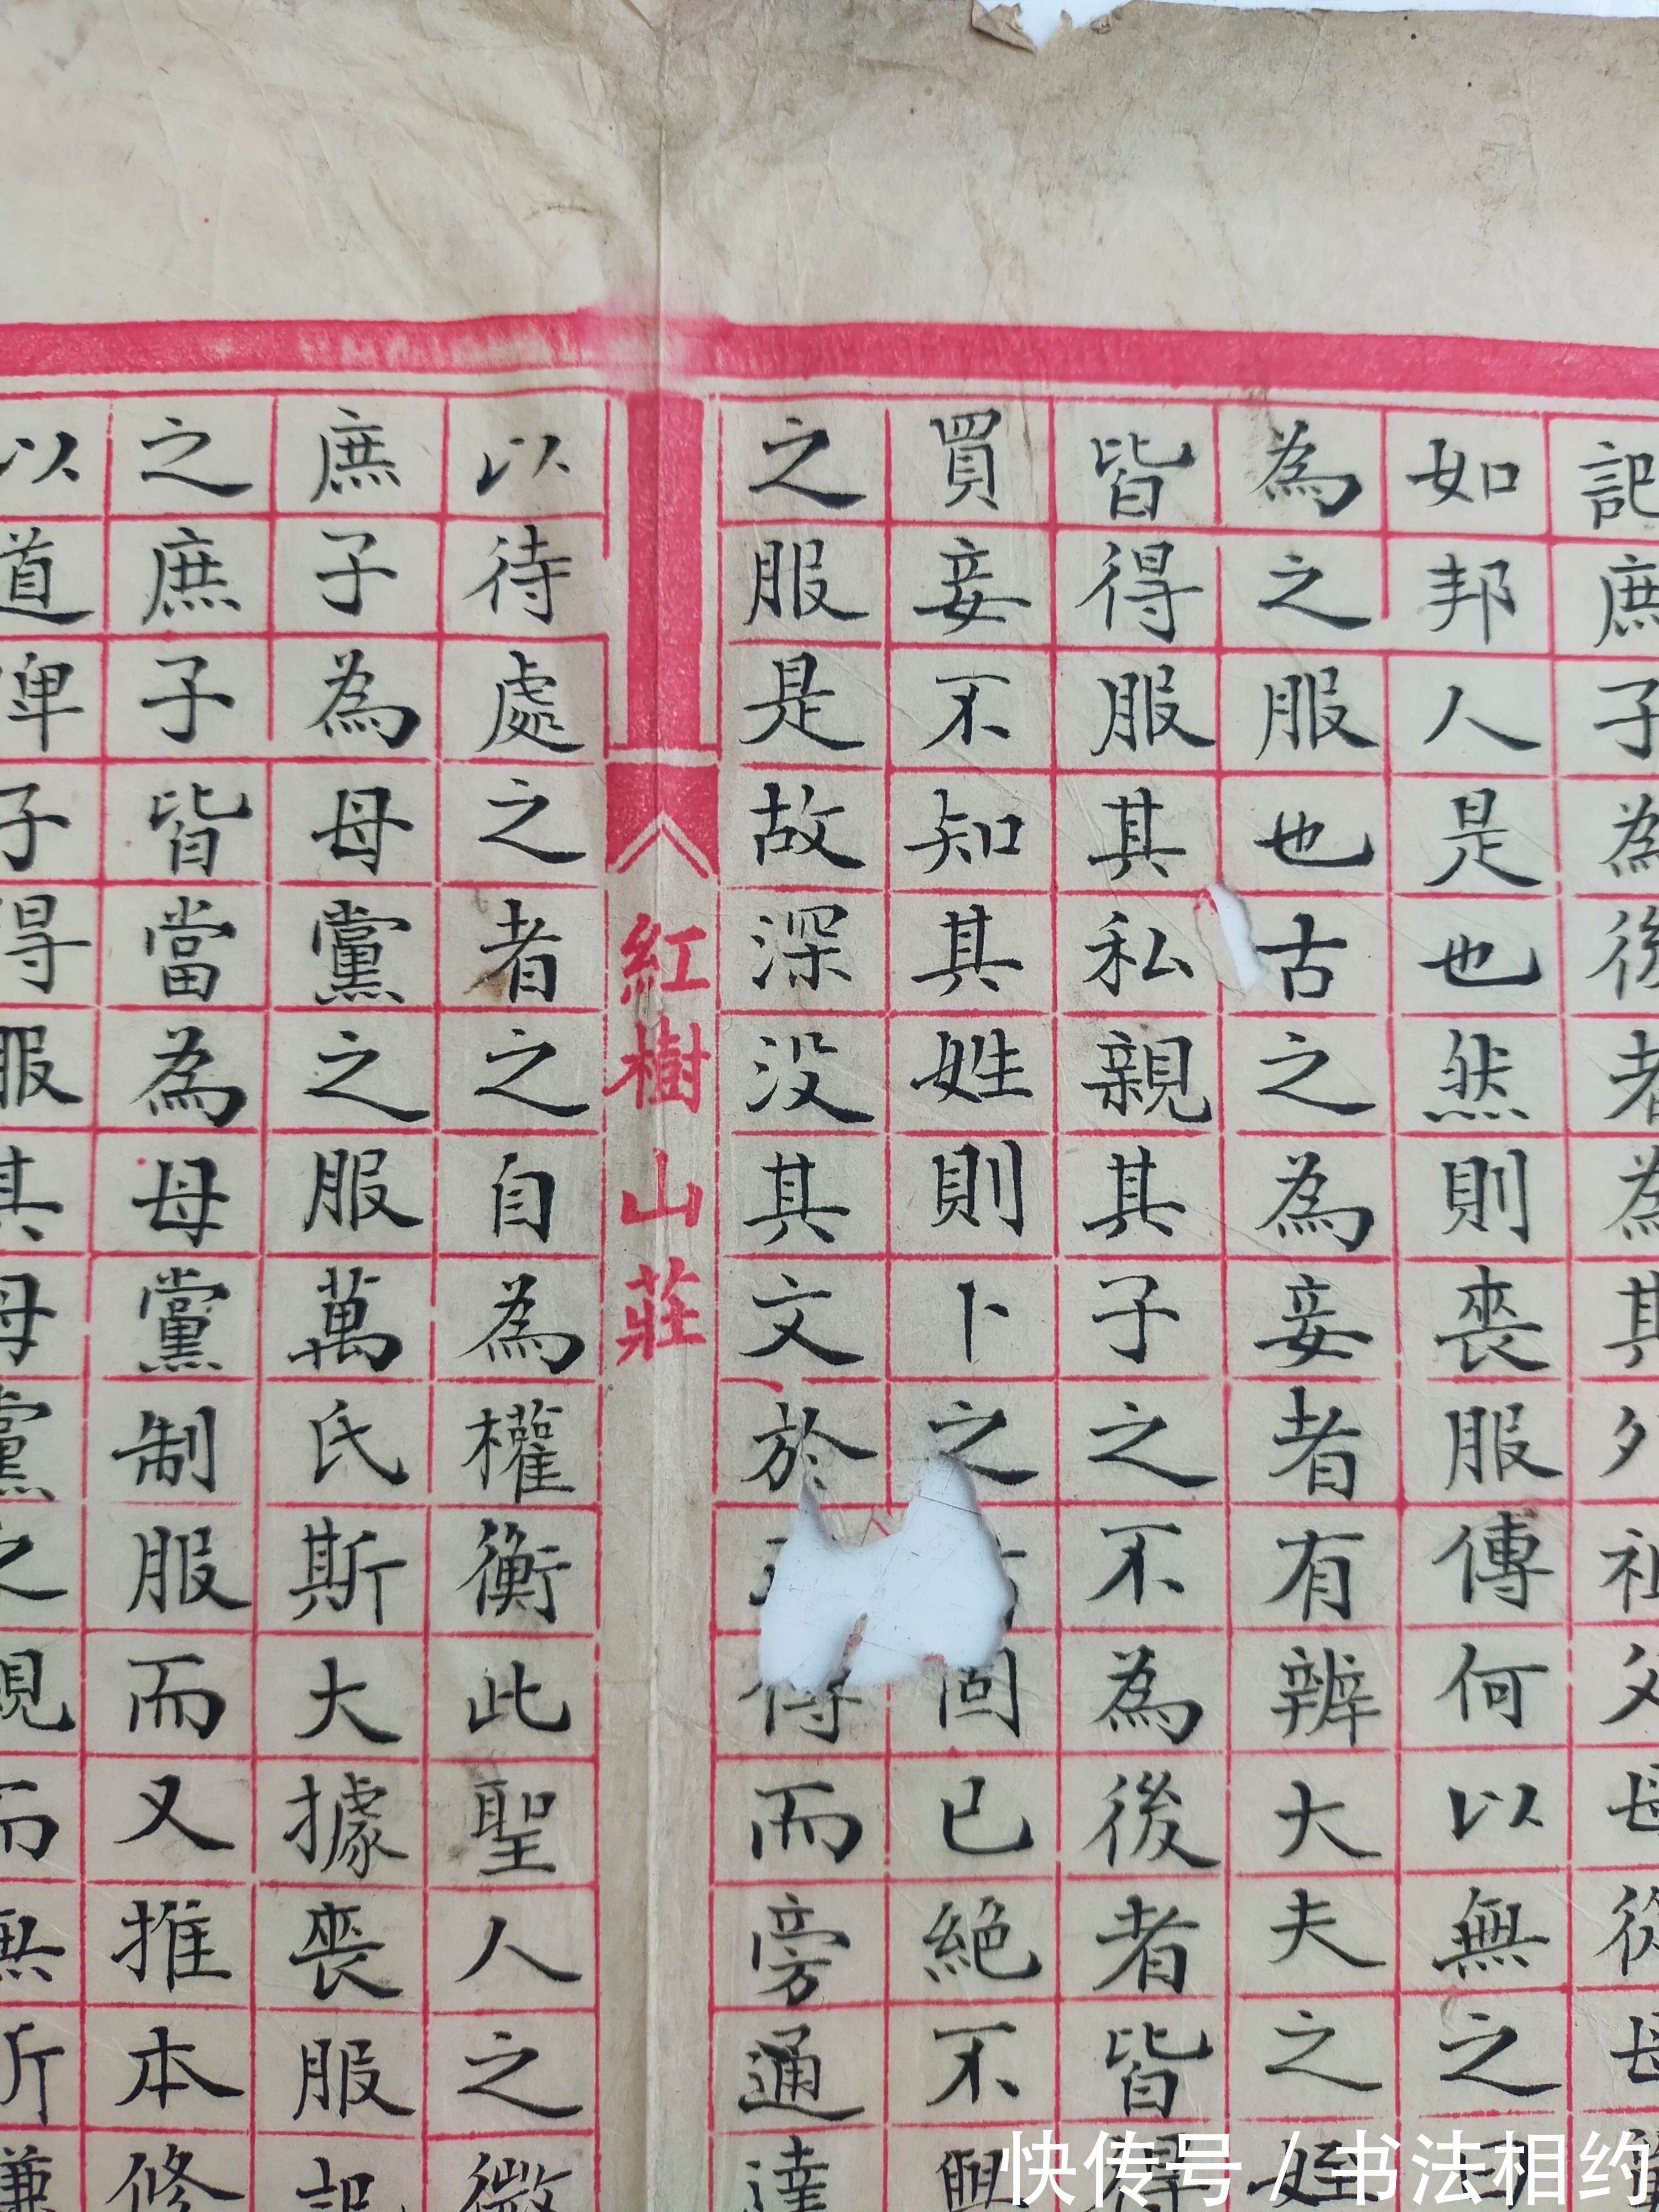 記庶子為後者為其外祖父母從母
如邦人是也然則喪服傳何以無之曰
為之服也古之為妾者有辨大夫之姪
皆得服其私親其子之不為後者皆得
買妾不知其姓則卜之固已絕不與
之服是故深没其文於得而旁通達
紅樹山莊
以待處之者之自為權衡此聖人之微
庶子為母黨之服萬氏斯大據喪服記
之庶子皆當為母黨制服而又推本修
以道卑子得服其母黨之親而無所嫌
快传号 / 书法相约